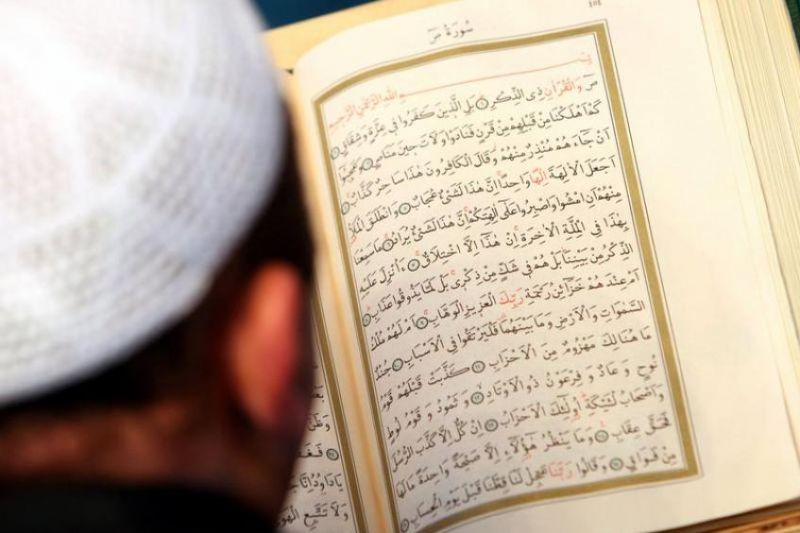 سُورَةُ صٓ
بِسْمِ اللّٰهِ الرَّحْمٰنِ الرَّحِيمِ
صٓ وَالْقُرْاٰنِ ذِي الذِّكْرِ ۝ بَلِ الَّذِينَ كَفَرُوا فِي عِزَّةٍ وَشِقَاقٍ ۝
كَمْ اَهْلَكْنَا مِنْ قَبْلِهِمْ مِنْ قَرْنٍ فَنَادَوْا وَلَاتَ حِينَ مَنَاصٍ ۝ وَعَجِبُوا
اَنْ جَاءَهُمْ مُنْذِرٌ مِنْهُمْ وَقَالَ الْكَافِرُونَ هٰذَا سَاحِرٌ كَذَّابٌ ۝
اَجَعَلَ الْاٰلِهَةَ اِلٰهًا وَاحِدًا اِنَّ هٰذَا لَشَيْءٌ عُجَابٌ ۝ وَانْطَلَقَ الْمَلَاُ
مِنْهُمْ اَنِ امْشُوا وَاصْبِرُوا عَلٰى اٰلِهَتِكُمْ اِنَّ هٰذَا لَشَيْءٌ يُرَادُ ۝ مَا سَمِعْنَا
بِهٰذَا فِي الْمِلَّةِ الْاٰخِرَةِ اِنْ هٰذَا اِلَّا اخْتِلَاقٌ ۝ ءَاُنْزِلَ عَلَيْهِ
الذِّكْرُ مِنْ بَيْنِنَا بَلْ هُمْ فِي شَكٍّ مِنْ ذِكْرِي بَلْ لَمَّا يَذُوقُوا عَذَابِ ۝
اَمْ عِنْدَهُمْ خَزَائِنُ رَحْمَةِ رَبِّكَ الْعَزِيزِ الْوَهَّابِ ۝ اَمْ لَهُمْ مُلْكُ
السَّمٰوَاتِ وَالْاَرْضِ وَمَا بَيْنَهُمَا فَلْيَرْتَقُوا فِي الْاَسْبَابِ ۝ جُنْدٌ
مَا هُنَالِكَ مَهْزُومٌ مِنَ الْاَحْزَابِ ۝ كَذَّبَتْ قَبْلَهُمْ قَوْمُ
نُوحٍ وَعَادٌ وَفِرْعَوْنُ ذُو الْاَوْتَادِ ۝ وَثَمُودُ وَقَوْمُ لُوطٍ
وَاَصْحَابُ لْـَٔيْكَةِ اُولٰئِكَ الْاَحْزَابُ ۝ اِنْ كُلٌّ اِلَّا كَذَّبَ الرُّسُلَ
فَحَقَّ عِقَابِ ۝ وَمَا يَنْظُرُ هٰؤُلَاءِ اِلَّا صَيْحَةً وَاحِدَةً مَا لَهَا
مِنْ فَوَاقٍ ۝ وَقَالُوا رَبَّنَا عَجِّلْ لَنَا قِطَّنَا قَبْلَ يَوْمِ الْحِسَابِ ۝
وَظَنَّ
يَادَاوُدُ اِنَّا
وَلَا تَتَّبِعِ